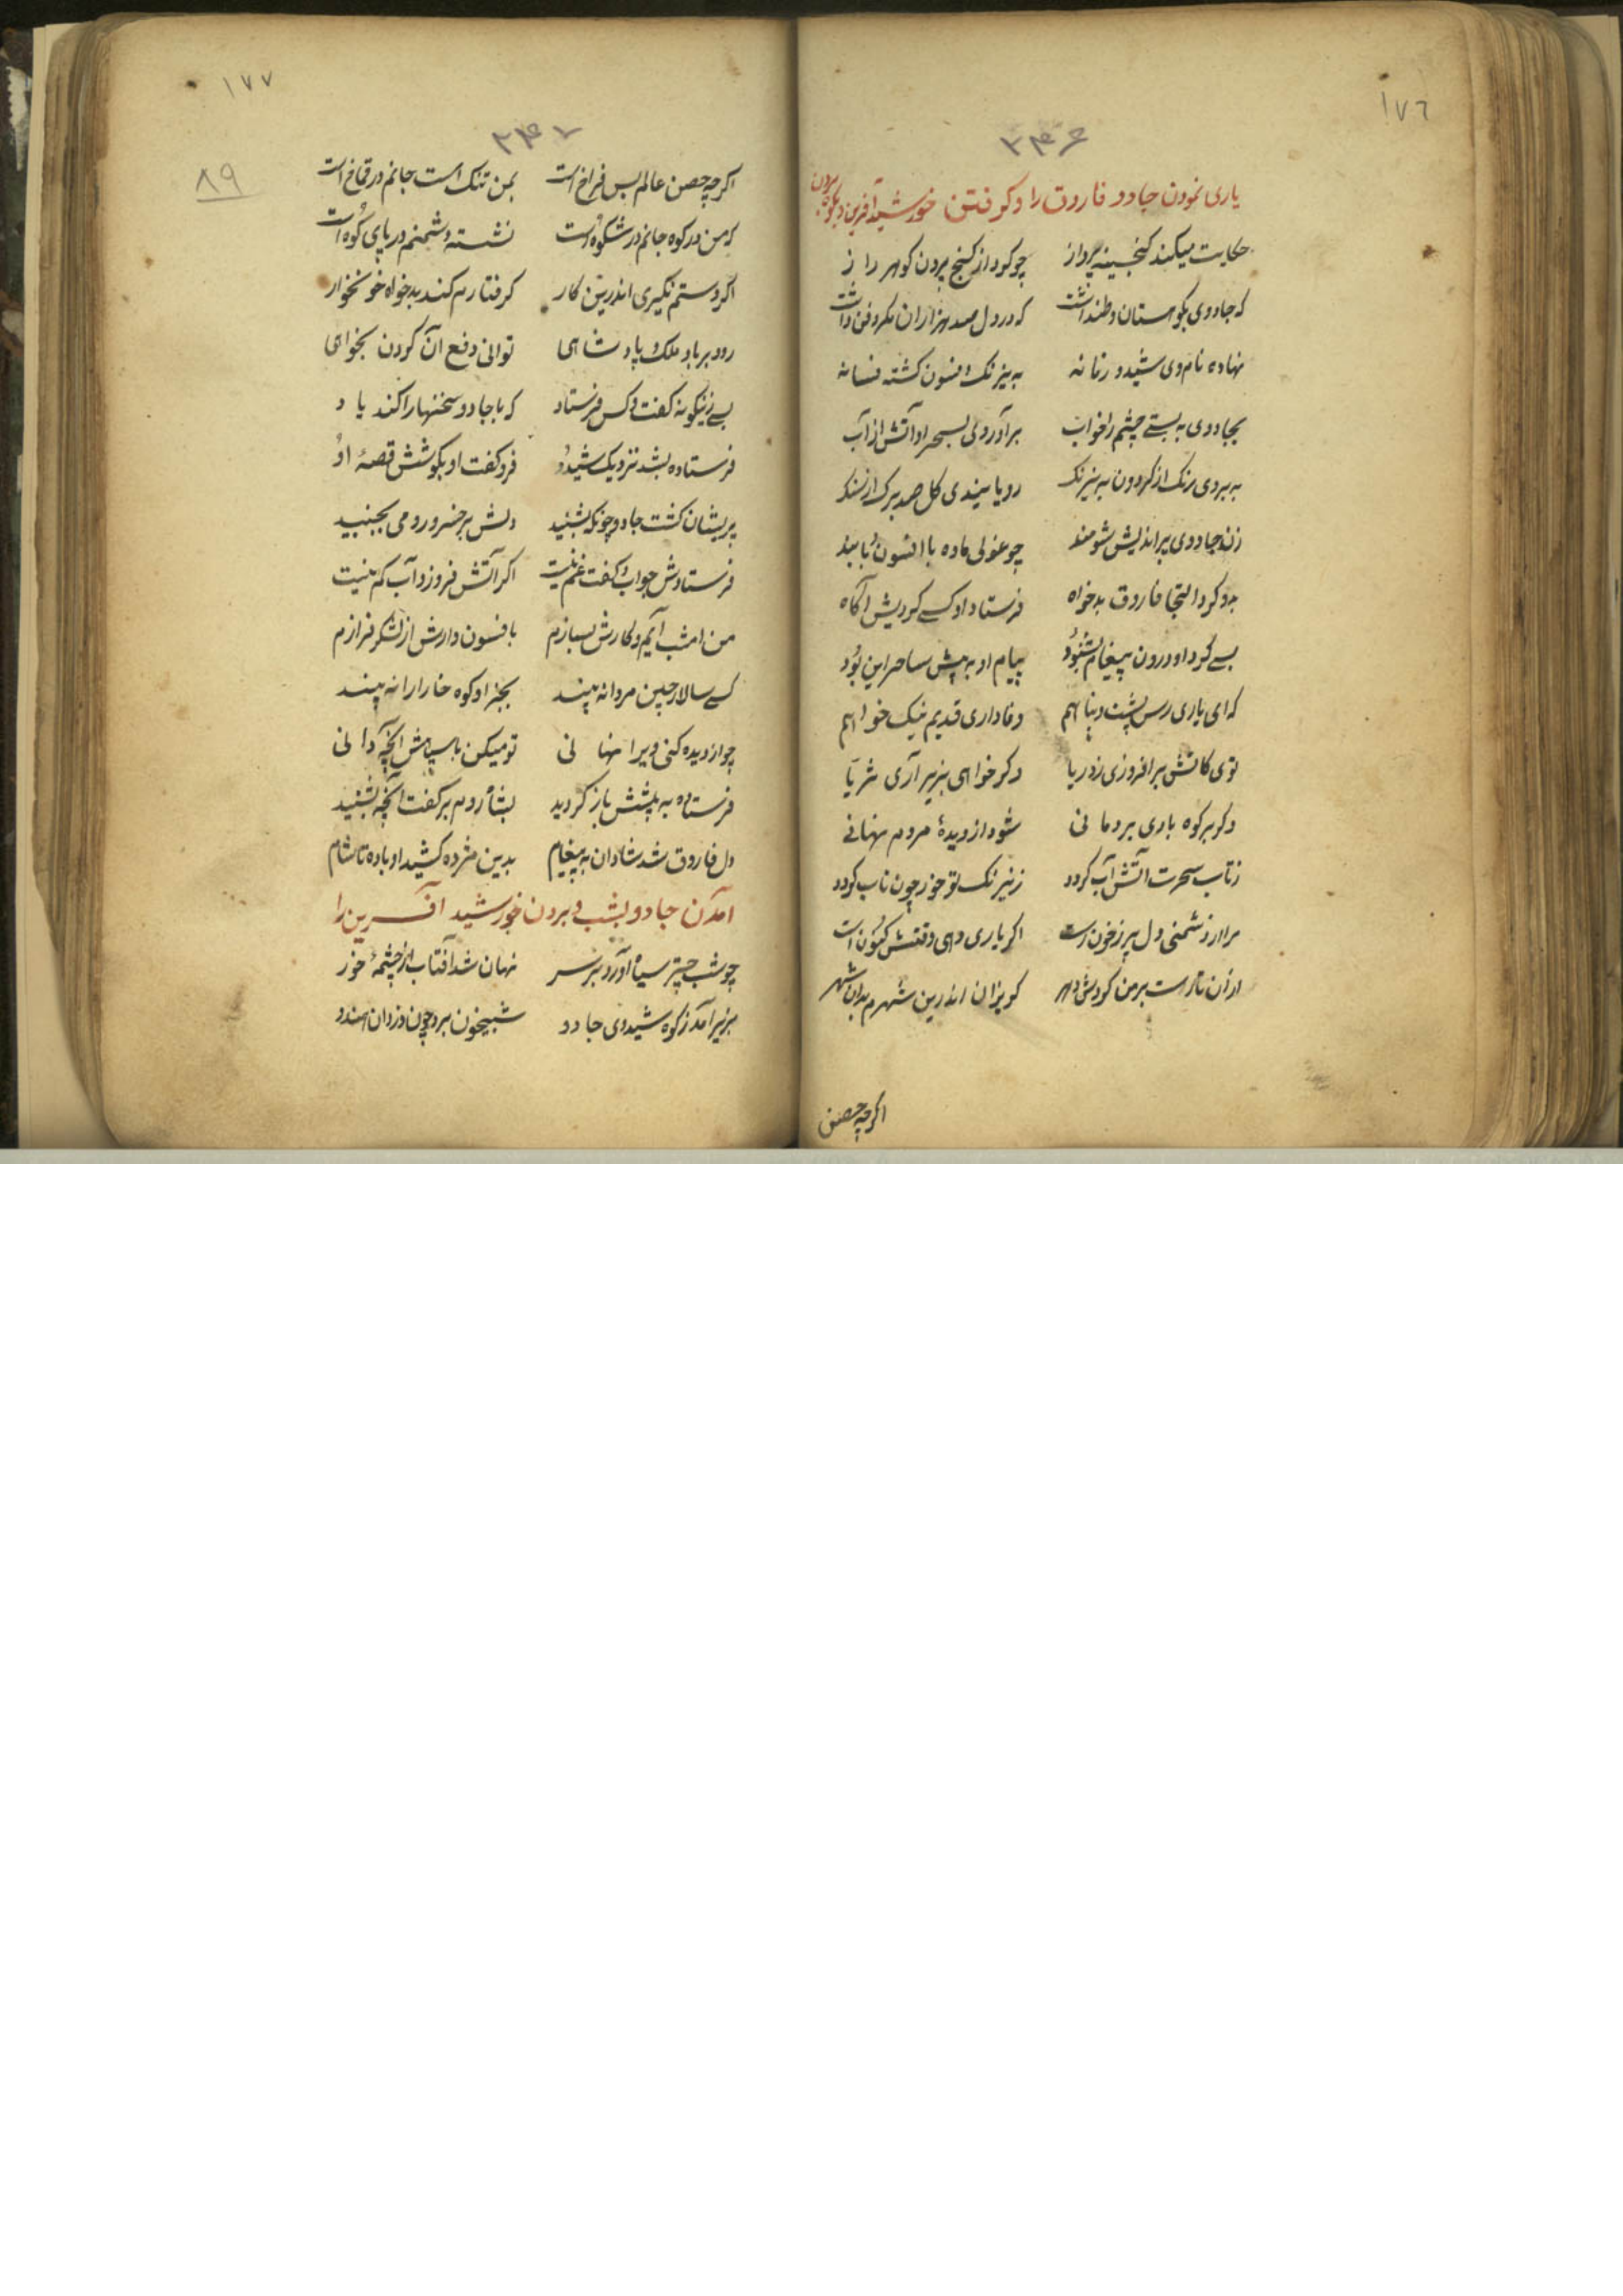 ١٧٦
۲۴۶
یاری نمودن جادو فاروق را و کرفتن خورشید آفرین و بکوه بردن
حکایت میکند کنجینه پرداز چو کرد از کنج بیرون کوهر راز
که جادوی بکوهستان وطن داشت که در دل صد هزاران مکر و فن داشت
نهاده نام وی شیدو زمانه به نیرنک و فسون کشته فسانه
بجادوی به بستے چشم را خواب برآوردی بسحر او آتش از آب
به بردی رنک از کردون به نیرنک رویانیدی کل صد برک از سنک
زن جادوی بد اندیش شومند چو غولی ماده با افسون
بدو کرد التجا فاروق بدخواه فرستاد او کسے کردیش آکاه
بسے کرد او درون پیغام بشنود پیام او به پیش ساحر این بود
که ای یاری رس پشت و پناهم وفاداری قدیم نیک خواهم
توی کاتش برافروزی ز دریا وکر خواهی بزیر آری ثریا
وکر بر کوه باری بردمانی شود از دیدهٔ مردم نهانے
ز تاب سحرت آتش آب کردد ز نیرنک تو خور چون ناب کردد
مرا از دشمنی دل پر ز خون است اکر یاری دهی وقتش کنون است
از آن تازست بر من کردش دهر کریزان اندرین شهرم بدان شهر
اکرچه حصن
١٧٧
۲۴۷
٨٩
اکرچه حصن عالم بس فراخ است بمن تنک است جانم در است
که من در کوه جانم در شکوه است نشسته دشمنم در پای کوه است
اکر دستم نکیری اندرین کار کرفتارم کند بدخواه خونخوار
رود بر باد ملک و پادشاهی توانی دفع آن کردن بخواهی
بسے زینکونه کفت و کس فرستاد که با جادو سخنها را کند یاد
فرستاده بشد نزدیک شیدو فرو کفت او بکوشش قصهٔ او
پریشان کشت جادو چونکه بشنید دلش بر خسرو رومی بجنبید
فرستادش جواب و کفت غم نیست اکر آتش فروزد آب کم نیست
من امشب آیم و کارش بسازم بافسون دارش از لشکر فرازم
کسے سالار چین مردانه بیند بجز او کوه خارا را نه بیند
چو از دیده کنی ویرا نهانی تو میکن با سپاهش آنچه دانی
فرستاده به پیشش باز کردید بشاه روم بر کفت آنچه بشنید
دل فاروق شد شادان به پیغام بدین مژده کشید او باده تا شام
آمدن جادو بشب و بردن خورشید آفرین را
چو شب چتر سیاه آورد بر سر نهان شد آفتاب از چشمهٔ خور
بزیر آمد ز کوه شیدوی جادو شبیخون برد چون دزدان هندو